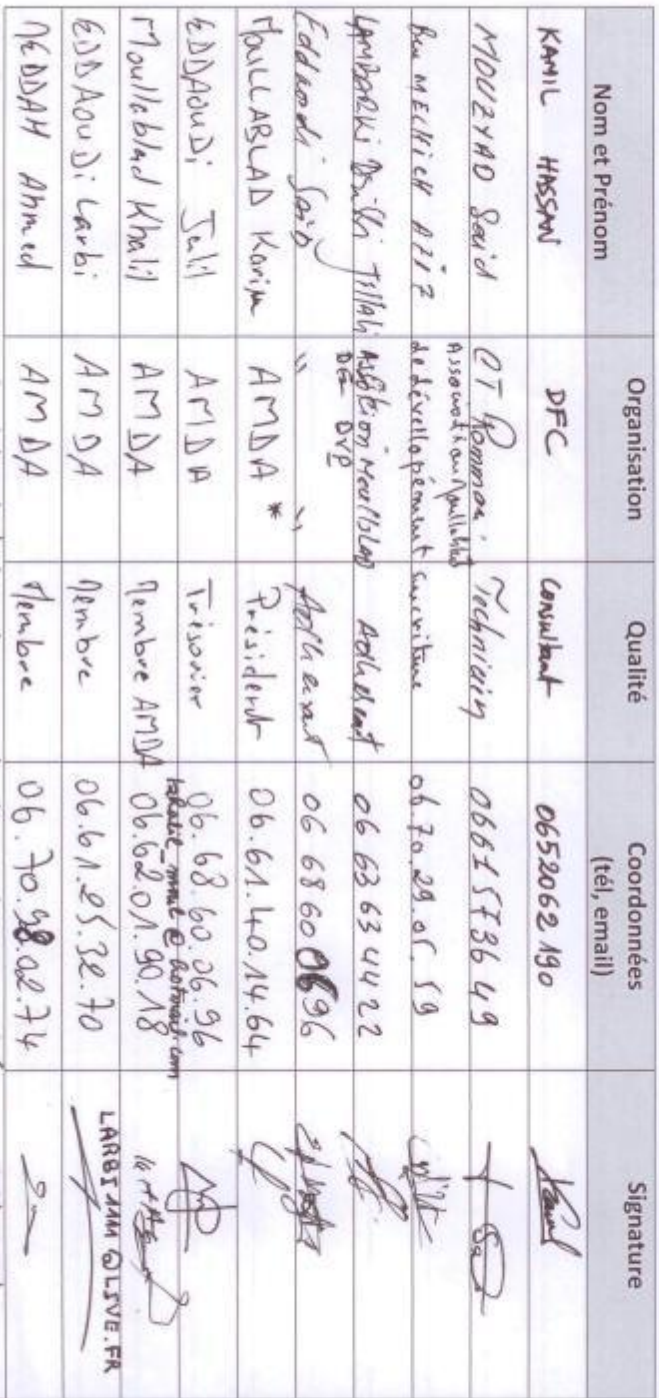 Nom et Prénom Organisation Qualité Coordonnées (tél, email) Signature
KAMIL HASSAN DFC Consultant 0652062190
MOUZYAD Said CT Technicien 0661573649
Ben AZIZ Association de dévellopement 06.70.29.05.59
Jillali Adherent 06 63 63 44 22
Eddaoudi Said " " Adherent 06 68 60 06 96
MOULLABLAD Karim AMDA * Président 06.61.40.14.64
EDDAOUDi Jalil AMDA Trésorier 06.68.60.06.96
Moullablad Khalil AMDA Membre AMDA 06.62.01.90.18
EDDAOUDi Larbi AMDA Membre 06.61.25.32.70 LARBIMM@LIVE.FR
NEDDAH Ahmed AMDA Membre 06.70.98.02.74